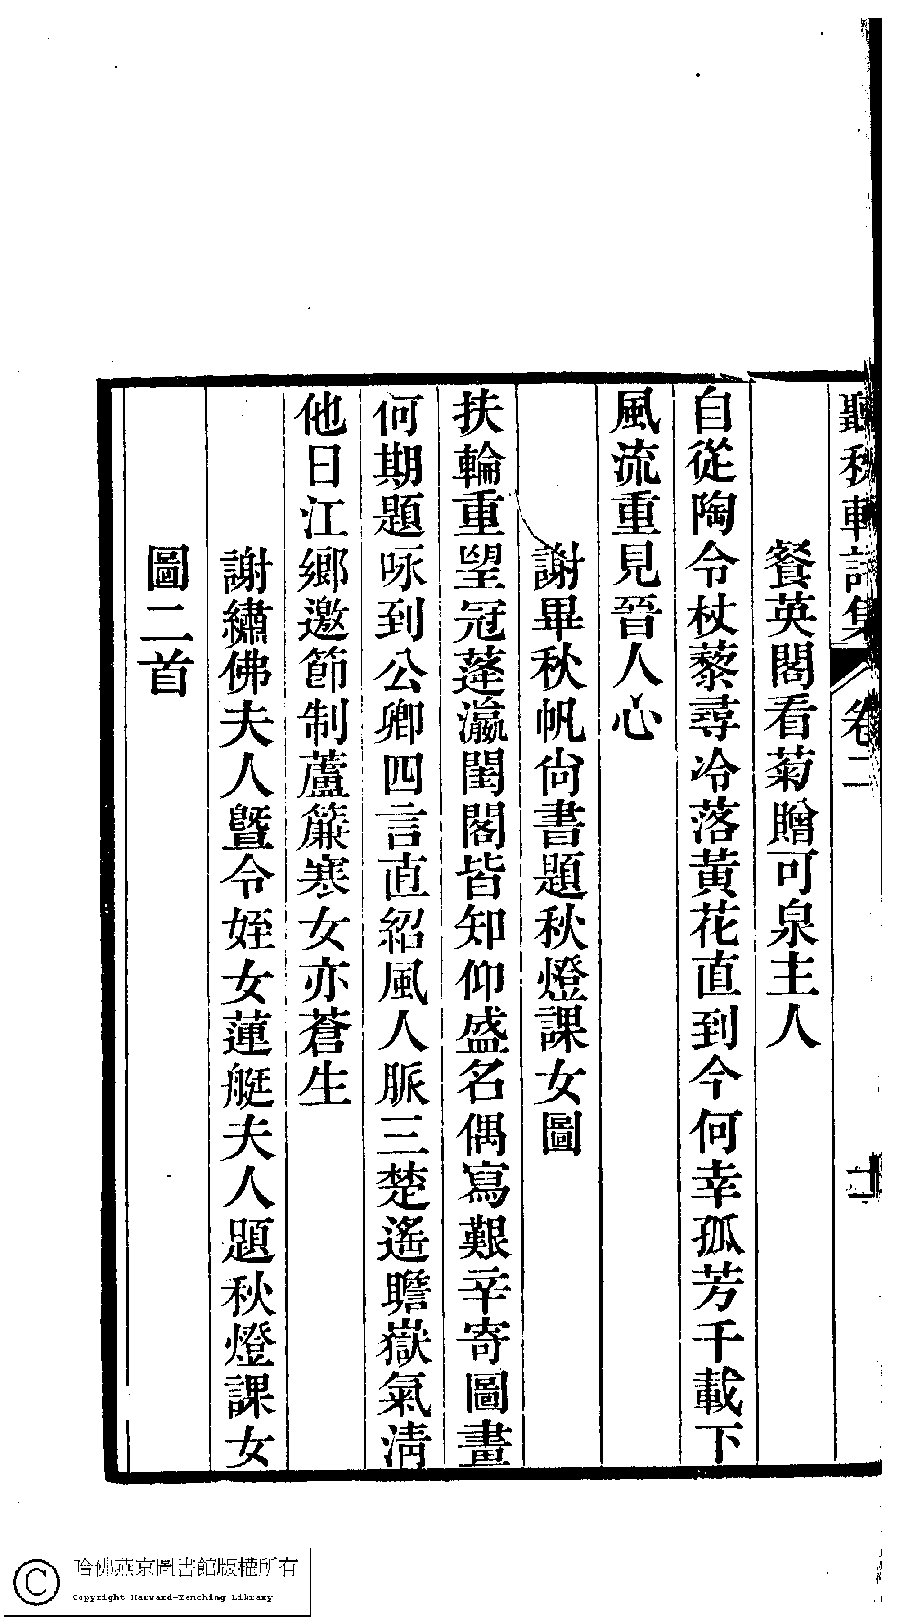 聽秋軒詩集 卷二
餐英閣看菊贈可泉主人
自從陶令杖藜尋冷落黃花直到今何幸孤芳千載下
風流重見晉人心
謝畢秋帆尙書題秋燈課女圖
扶輪重望冠蓬瀛閨閣皆知仰盛名偶寫艱辛寄圖畫
何期題咏到公卿四言直紹風人脈三楚遙瞻嶽氣淸
他日江鄉邀節制蘆簾寒女亦蒼生
謝繡佛夫人曁令姪女蓮艇夫人題秋燈課女
圖二首
哈佛燕京圖書館版權所有
Copyright Harvard-Yenching Library